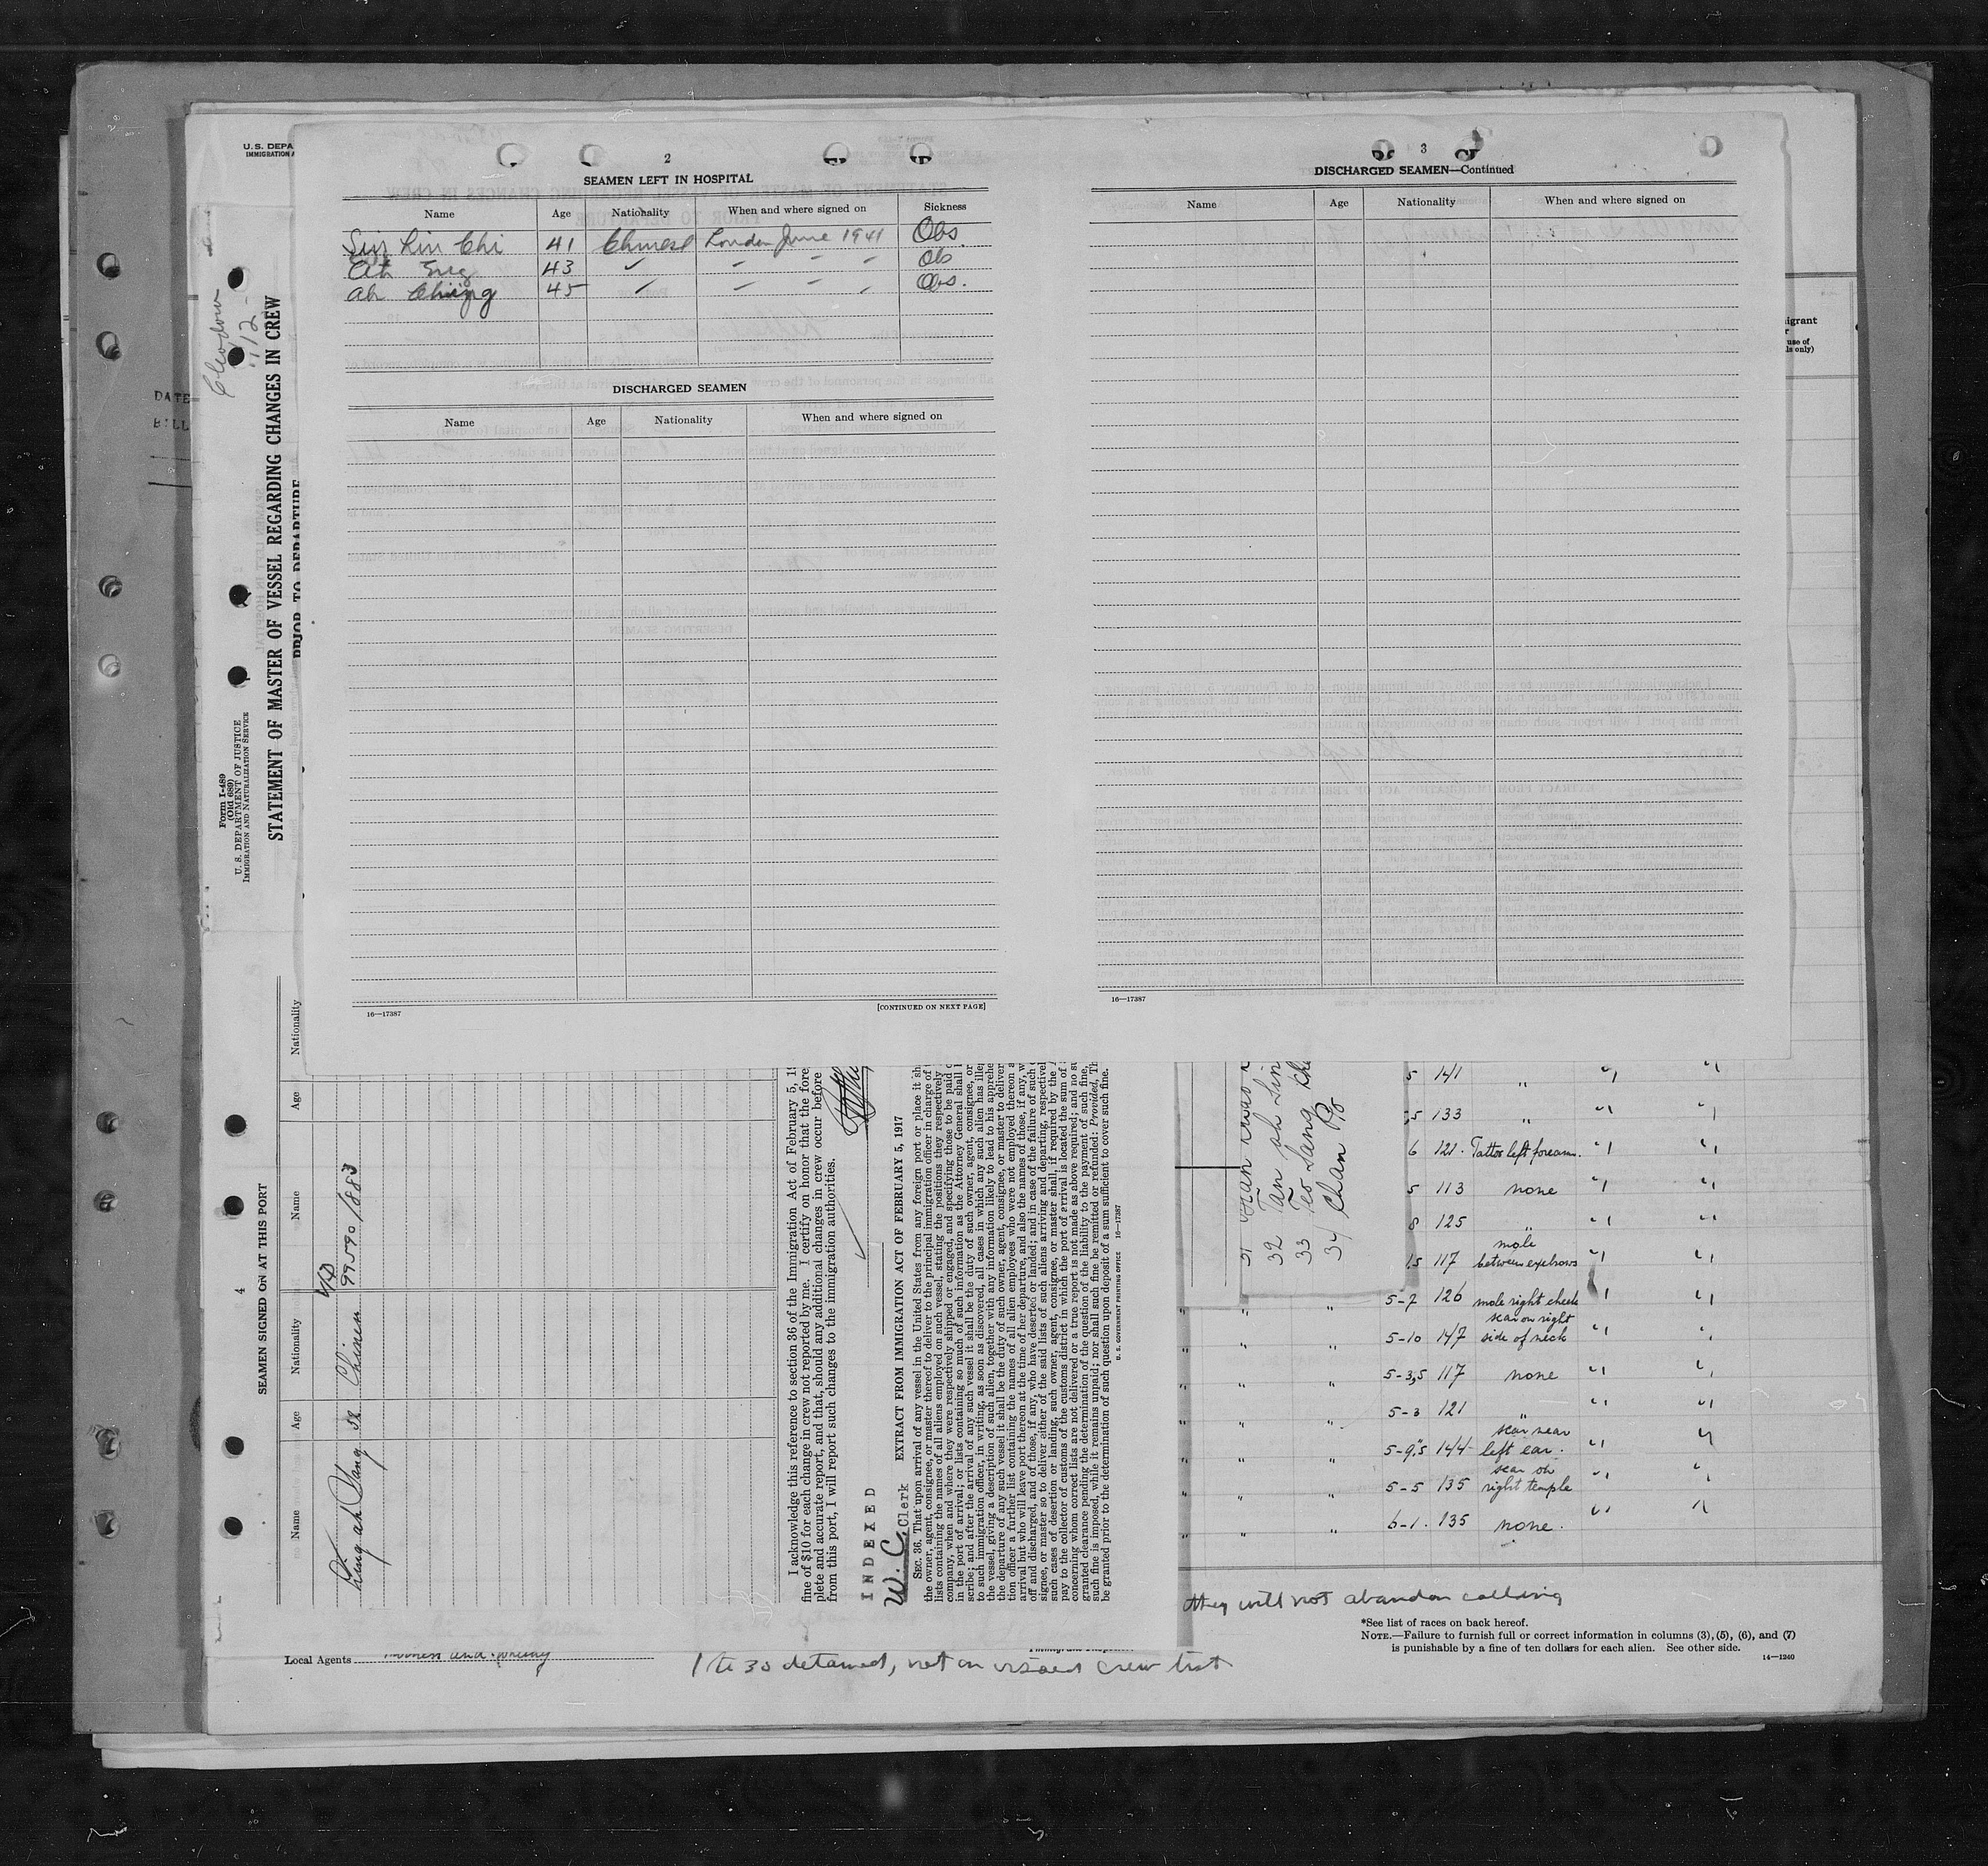 U.S. DEPA
IMMIGRATION A
2
SEAMEN LEFT IN HOSPITAL
Name Age Nationality When and where signed on Sickness
Lin Chi 41 Chinese London June 1941 Obs.
Ah Eng 43 ✓ " " " Obs
Ah Ching 45 " " " " Obs.
DISCHARGED SEAMEN
Name Age Nationality When and where signed on
16—17387 [CONTINUED ON NEXT PAGE]
3
DISCHARGED SEAMEN—Continued
Name Age Nationality When and where signed on
16—17387
DATE
BILL
112
Form I-489
(Old 689)
U. S. DEPARTMENT OF JUSTICE
IMMIGRATION AND NATURALIZATION SERVICE
STATEMENT OF MASTER OF VESSEL REGARDING CHANGES IN CREW
PRIOR TO DEPARTURE
4
SEAMEN SIGNED ON AT THIS PORT
Name Age Nationality Name Age Nationality
Ah 52 Chinese 99590/1883
I acknowledge this reference to section 36 of the Immigration Act of February 5, 19
fine of $10 for each change in crew not reported by me. I certify on honor that the fore
plete and accurate report, and that, should any additional changes in crew occur before
from this port, I will report such changes to the immigration authorities.
INDEXED
W. C.
Clerk
EXTRACT FROM IMMIGRATION ACT OF FEBRUARY 5, 1917
SEC. 36. That upon arrival of any vessel in the United States from any foreign port or place it sh
the owner, agent, consignee, or master thereof to deliver to the principal immigration officer in charge of
lists containing the names of all aliens employed on such vessel, stating the positions they respectively
company, when and where they were respectively shipped or engaged, and specifying those to be paid o
in the port of arrival; or lists containing so much of such information as the Attorney General shall
scribe; and after the arrival of any such vessel it shall be the duty of such owner, agent, consignee, or
to such immigration officer, in writing, as soon as discovered, all cases in which any such alien has illeg
the vessel, giving a description of such alien, together with any information likely to lead to his apprehe
the departure of any such vessel it shall be the duty of such owner, agent, consignee, or master to deliver
tion officer a further list containing the names of all alien employees who were not employed thereon a
arrival but who will leave port thereon at the time of her departure, and also the names of those, if any, w
off and discharged, and of those, if any, who have deserted or landed; and in case of the failure of such
signee, or master so to deliver either of the said lists of such aliens arriving and departing, respectivel
such cases of desertion or landing, such owner, agent, consignee, or master shall, if required by the
pay to the collector of customs of the customs district in which the port of arrival is located the sum of
concerning whom correct lists are not delivered or a true report is not made as above required; and no su
granted clearance pending the determination of the question of the liability to the payment of such fine,
such fine is imposed, while it remains unpaid; nor shall such fine be remitted or refunded: Provided, Th
be granted prior to the determination of such question upon deposit of a sum sufficient to cover such fine.
U. S. GOVERNMENT PRINTING OFFICE 16—17387
31
32 Tan Ah Lin
33 Teo Sang
34 Chan Po
igrant
r
use of
ls only)
5 141 "
5 133 "
6 121 Tattoo left forearm.
5 113 none
8 125 "
15 117 mole between eyebrows
5-7 126 mole right cheek
5-10 147 scar on right side of neck
5-3,5 117 none
5-3 121 "
5-9,5 144 scar near left ear.
5-5 135 scar on right temple
6-1. 135 none.
they will not abandon calling
*See list of races on back hereof.
NOTE.—Failure to furnish full or correct information in columns (3), (5), (6), and (7)
is punishable by a fine of ten dollars for each alien. See other side.
14—1240
Local Agents
1 to 30 detained, not on visaed crew list